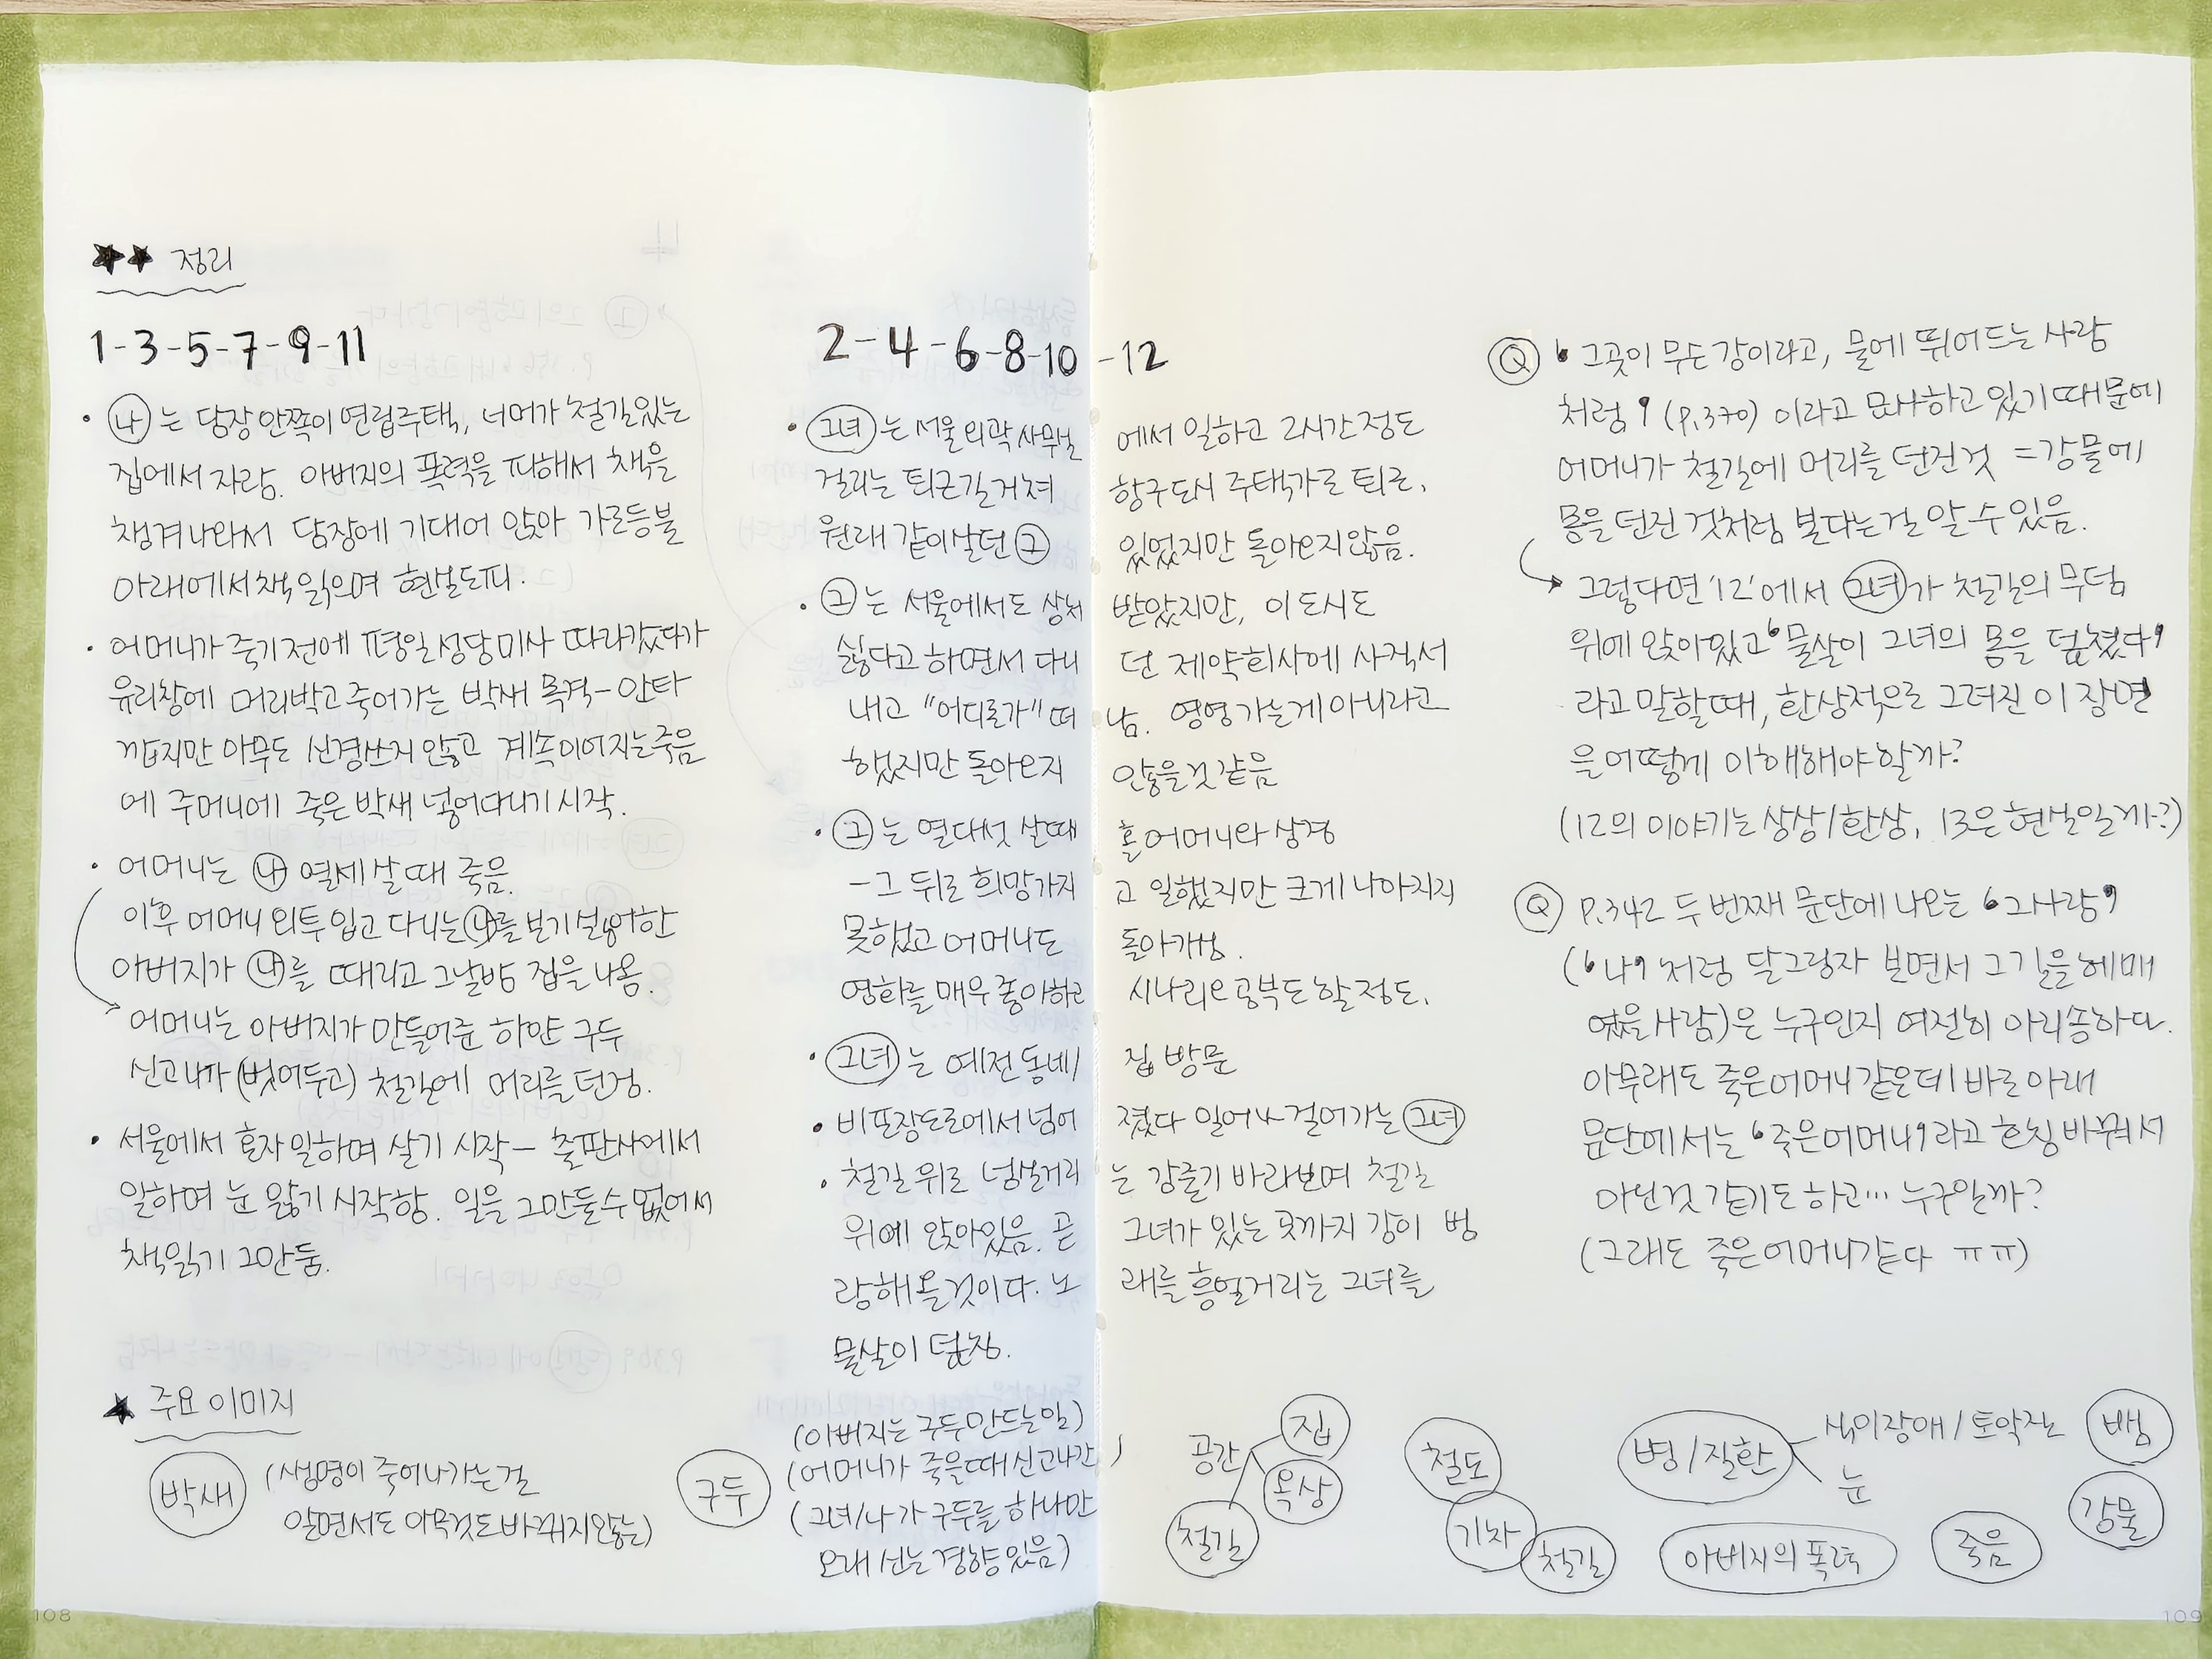 ★★ 정리
1-3-5-7-9-11
• 나는 담장 안쪽이 연립주택, 너머가 철길있는
집에서 자람. 아버지의 폭력을 피해서 책을
챙겨나와서 담장에 기대어 앉아 가로등불
아래에서 책 읽으며 현실도피.
• 어머니가 죽기 전에 평일 성당미사 따라갔다가
유리창에 머리박고 죽어가는 박새 목격-안타
깝지만 아무도 신경쓰지 않고 계속 이어지는 죽음
에 주머니에 죽은 박새 넣어다니기 시작.
• 어머니는 나 열세살때 죽음.
이후 어머니 외투 입고 다니는 나를 보기 싫어한
아버지가 나를 때리고 그날밤 집을 나옴.
어머니는 아버지가 만들어준 하얀 구두
신고나가 (벗어두고) 철길에 머리를 던짐.
• 서울에서 혼자 일하며 살기 시작- 출판사에서
일하며 눈 앓기 시작함. 일을 그만둘 수 없어서
책읽기 그만둠.
2-4-6-8-10-12
• 그녀는 서울 외곽 사무실에서 일하고 2시간 정도
걸리는 퇴근길 거쳐 항구도시 주택가로 퇴근.
원래 같이살던 그 있었지만 돌아오지않음.
• 그는 서울에서도 상처받았지만, 이 도시도
싫다고 하면서 다니던 제약회사에 사직서
내고 "어디론가" 떠남. 영영 가는게 아니라고
했지만 돌아오지 않을것 같음
• 그는 열다섯 살때 홀어머니와 상경
-그 뒤로 희망가지고 일했지만 크게 나아지지
못했고 어머니도 돌아가심.
영화를 매우 좋아하고 시나리오 공부도 할 정도.
• 그녀는 예전 동네/집 방문
• 비포장도로에서 넘어졌다 일어나 걸어가는 그녀
• 철길 위로 넘실거리는 강줄기 바라보며 철길
위에 앉아있음. 곧 그녀가 있는 곳까지 강이 범
람해 올것이다. 노래를 흥얼거리는 그녀를
물살이 덮침.
Q '그곳이 무슨 강이라고, 물에 뛰어드는 사람
처럼' (P.370) 이라고 묘사하고 있기 때문에
어머니가 철길에 머리를 던진것 = 강물에
몸을 던진 것처럼 본다는걸 알 수 있음.
그렇다면 '12'에서 그녀가 철길의 무덤
위에 앉아있고 '물살이 그녀의 몸을 덮쳤다'
라고 말할때, 환상적으로 그려진 이 장면
을 어떻게 이해해야 할까?
(12의 이야기는 상상/환상, 13은 현실일까?)
Q P.342 두 번째 문단에 나오는 '그사람'
('나' 처럼 달그림자 보면서 그 길을 헤매
였을 사람)은 누구인지 여전히 아리송하다.
아무래도 죽은어머니 같은데 바로 아래
문단에서는 '죽은어머니'라고 호칭 바꿔서
아닌것 같기도 하고… 누구일까?
(그래도 죽은어머니같다 ㅠㅠ)
★ 주요 이미지
박새 (생명이 죽어나가는걸
알면서도 아무것도 바뀌지않는)
구두 (아버지는 구두만드는일)
(어머니가 죽을때 신고나간)
(그녀/나가 구두를 하나만
오래 신는 경향 있음)
공간 집
옥상
철길
철도
기차
철길
병/질환 식이장애/토악질
눈
아버지의 폭력
죽음
뱀
강물
108
109